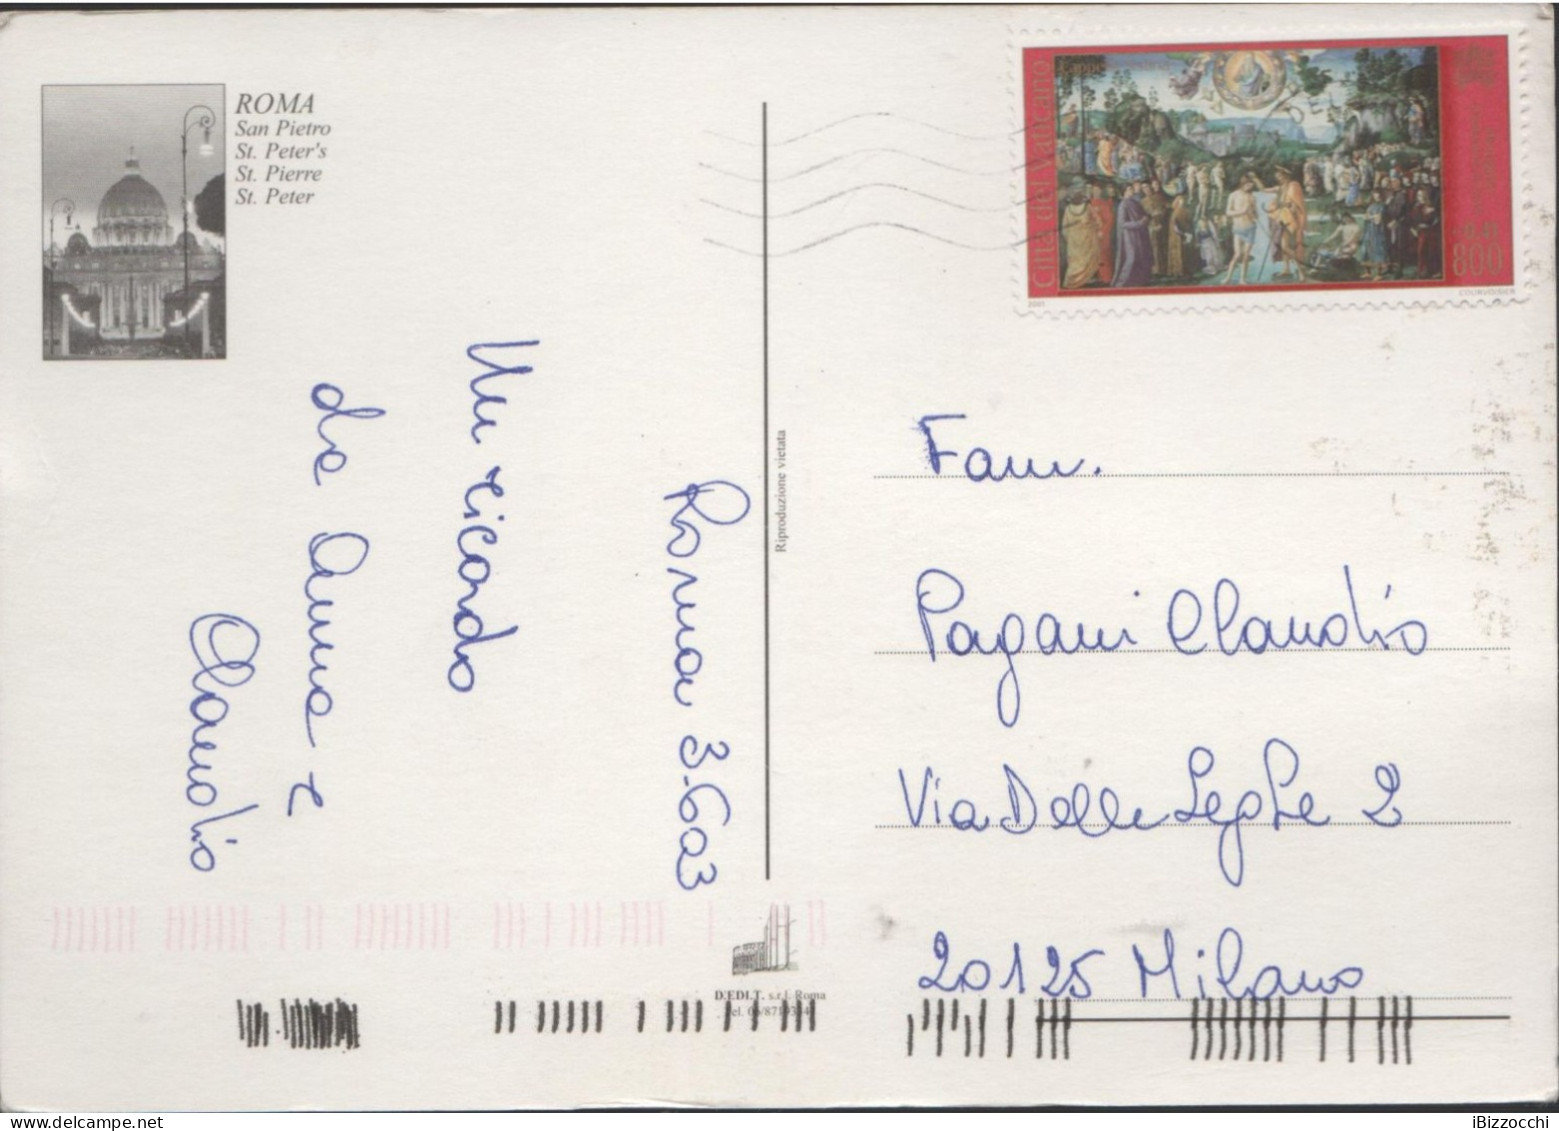 ROMA
San Pietro
St. Peter's
St. Pierre
St. Peter
Roma 3.6.03
Un ricordo
da Anna e
Claudio
Riproduzione vietata
D.EDI.T. s.r.l. Roma
Città del Vaticano
800
COURVOISIER
2001
Fam.
Pagani Claudio
Via Delle Leghe 2
20125 Milano
iBizzocchi